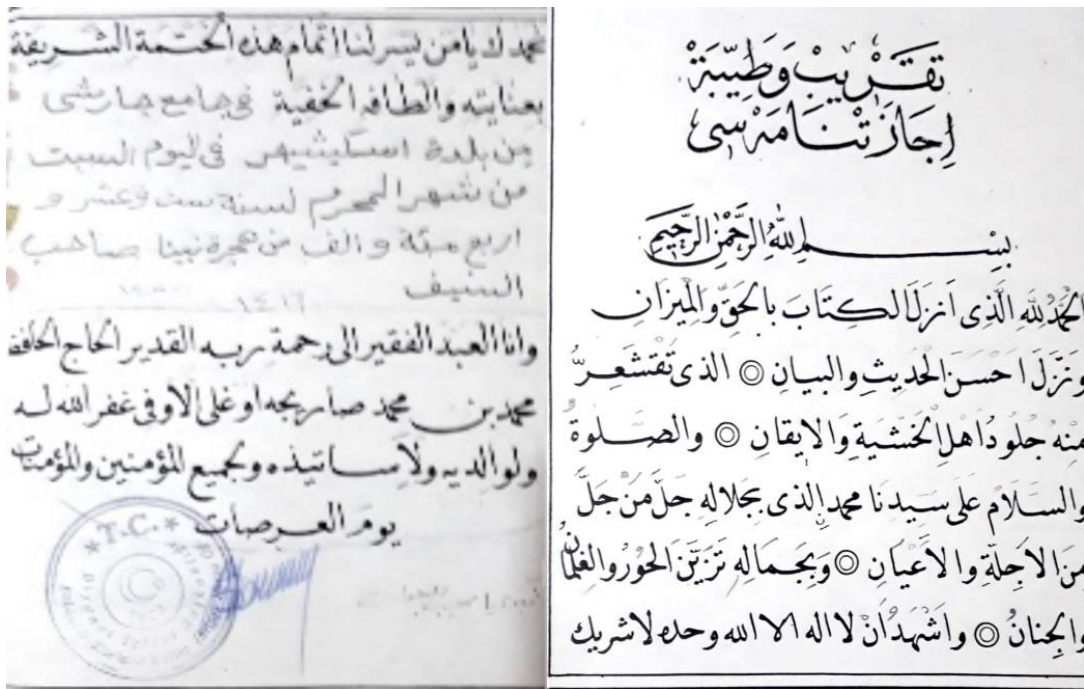 تَقْرِيبْ وَطَيِّبَةْ
اِجَازَتْنَامَهْ سِى
بِسْمِ اللهِ الرَّحْمٰنِ الرَّحِيمِ
الحَمْدُ لِلّٰهِ الَّذِى اَنْزَلَ الكِتَابَ بِالحَقِّ وَالْمِيزَانِ
وَنَزَّلَ اَحْسَنَ الحَدِيثِ والبيانِ ◎ الذى تَقْشَعِرُّ
مِنْهُ جُلُودُ اَهْلِ الخَشْيَةِ وَالايقَانِ ◎ والصَّلوةُ
والسَّلَامُ عَلى سَيِدِنَا محمدٍ الذى بجَلالِهِ جَلَّ مَنْ جَلَّ
مِنَ الاَجِلَّةِ وَالاَعْيَانِ ◎ وبِجَمَالِهِ تَزَيَّنَ الحُورُ والغِلْمَانُ
وَالجِنَانُ ◎ وَاَشْهَدُ اَنْ لا اله الا الله وحده لا شريك
نحمدك يا من يسر لنا اتمام هذه الختمة الشريفة
بعنايته والطافه الخفية في جامع چارشى
من بلدة اسكيشهر في اليوم السبت
من شهر المحرم لسنة ست وعشر و
اربع مئة والف من هجرة نبينا صاحب
السنيف
١٤١٦
وانا العبد الفقير الى رحمة ربه القدير الحاج الحافظ
محمد بن محمد صاريجه اوغلى الاوفى غفر الله له
ولوالديه ولأساتيذه ولجميع المؤمنين والمؤمنات
يوم العرصات
T.C.